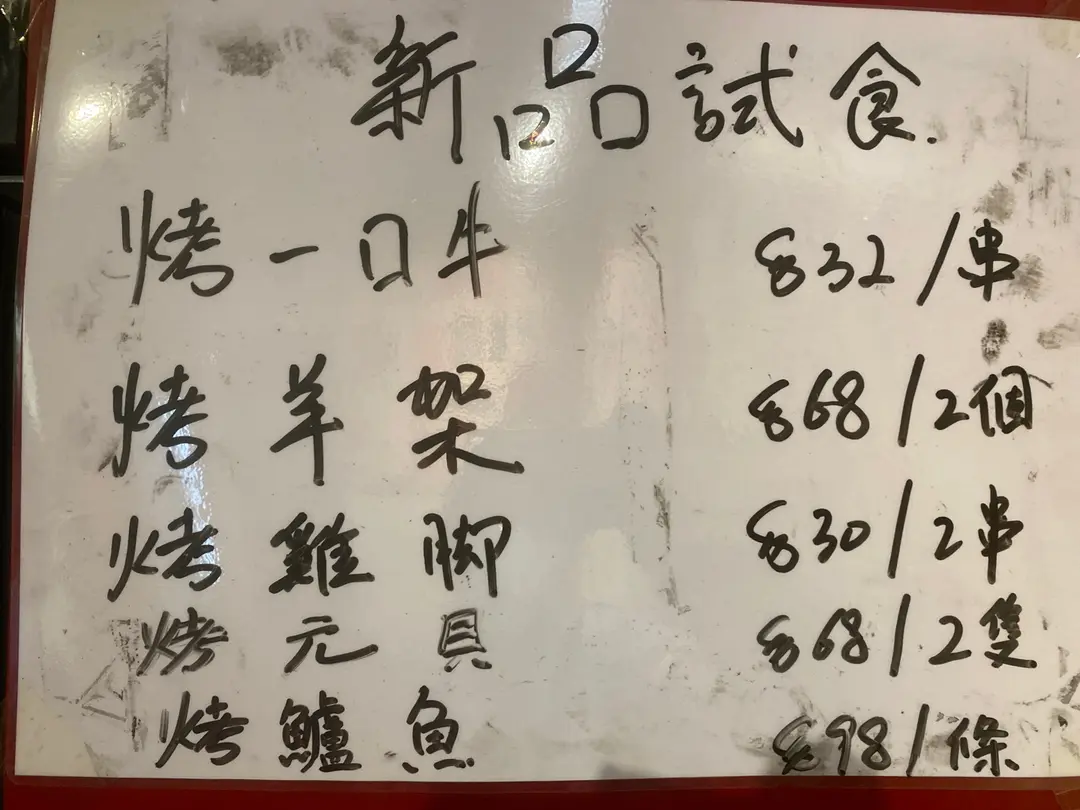 新品試食.
烤一口牛 $32/串
烤羊架 $68/2個
烤雞脚 $30/2串
烤元貝 $68/2隻
烤鱸魚 $98/條